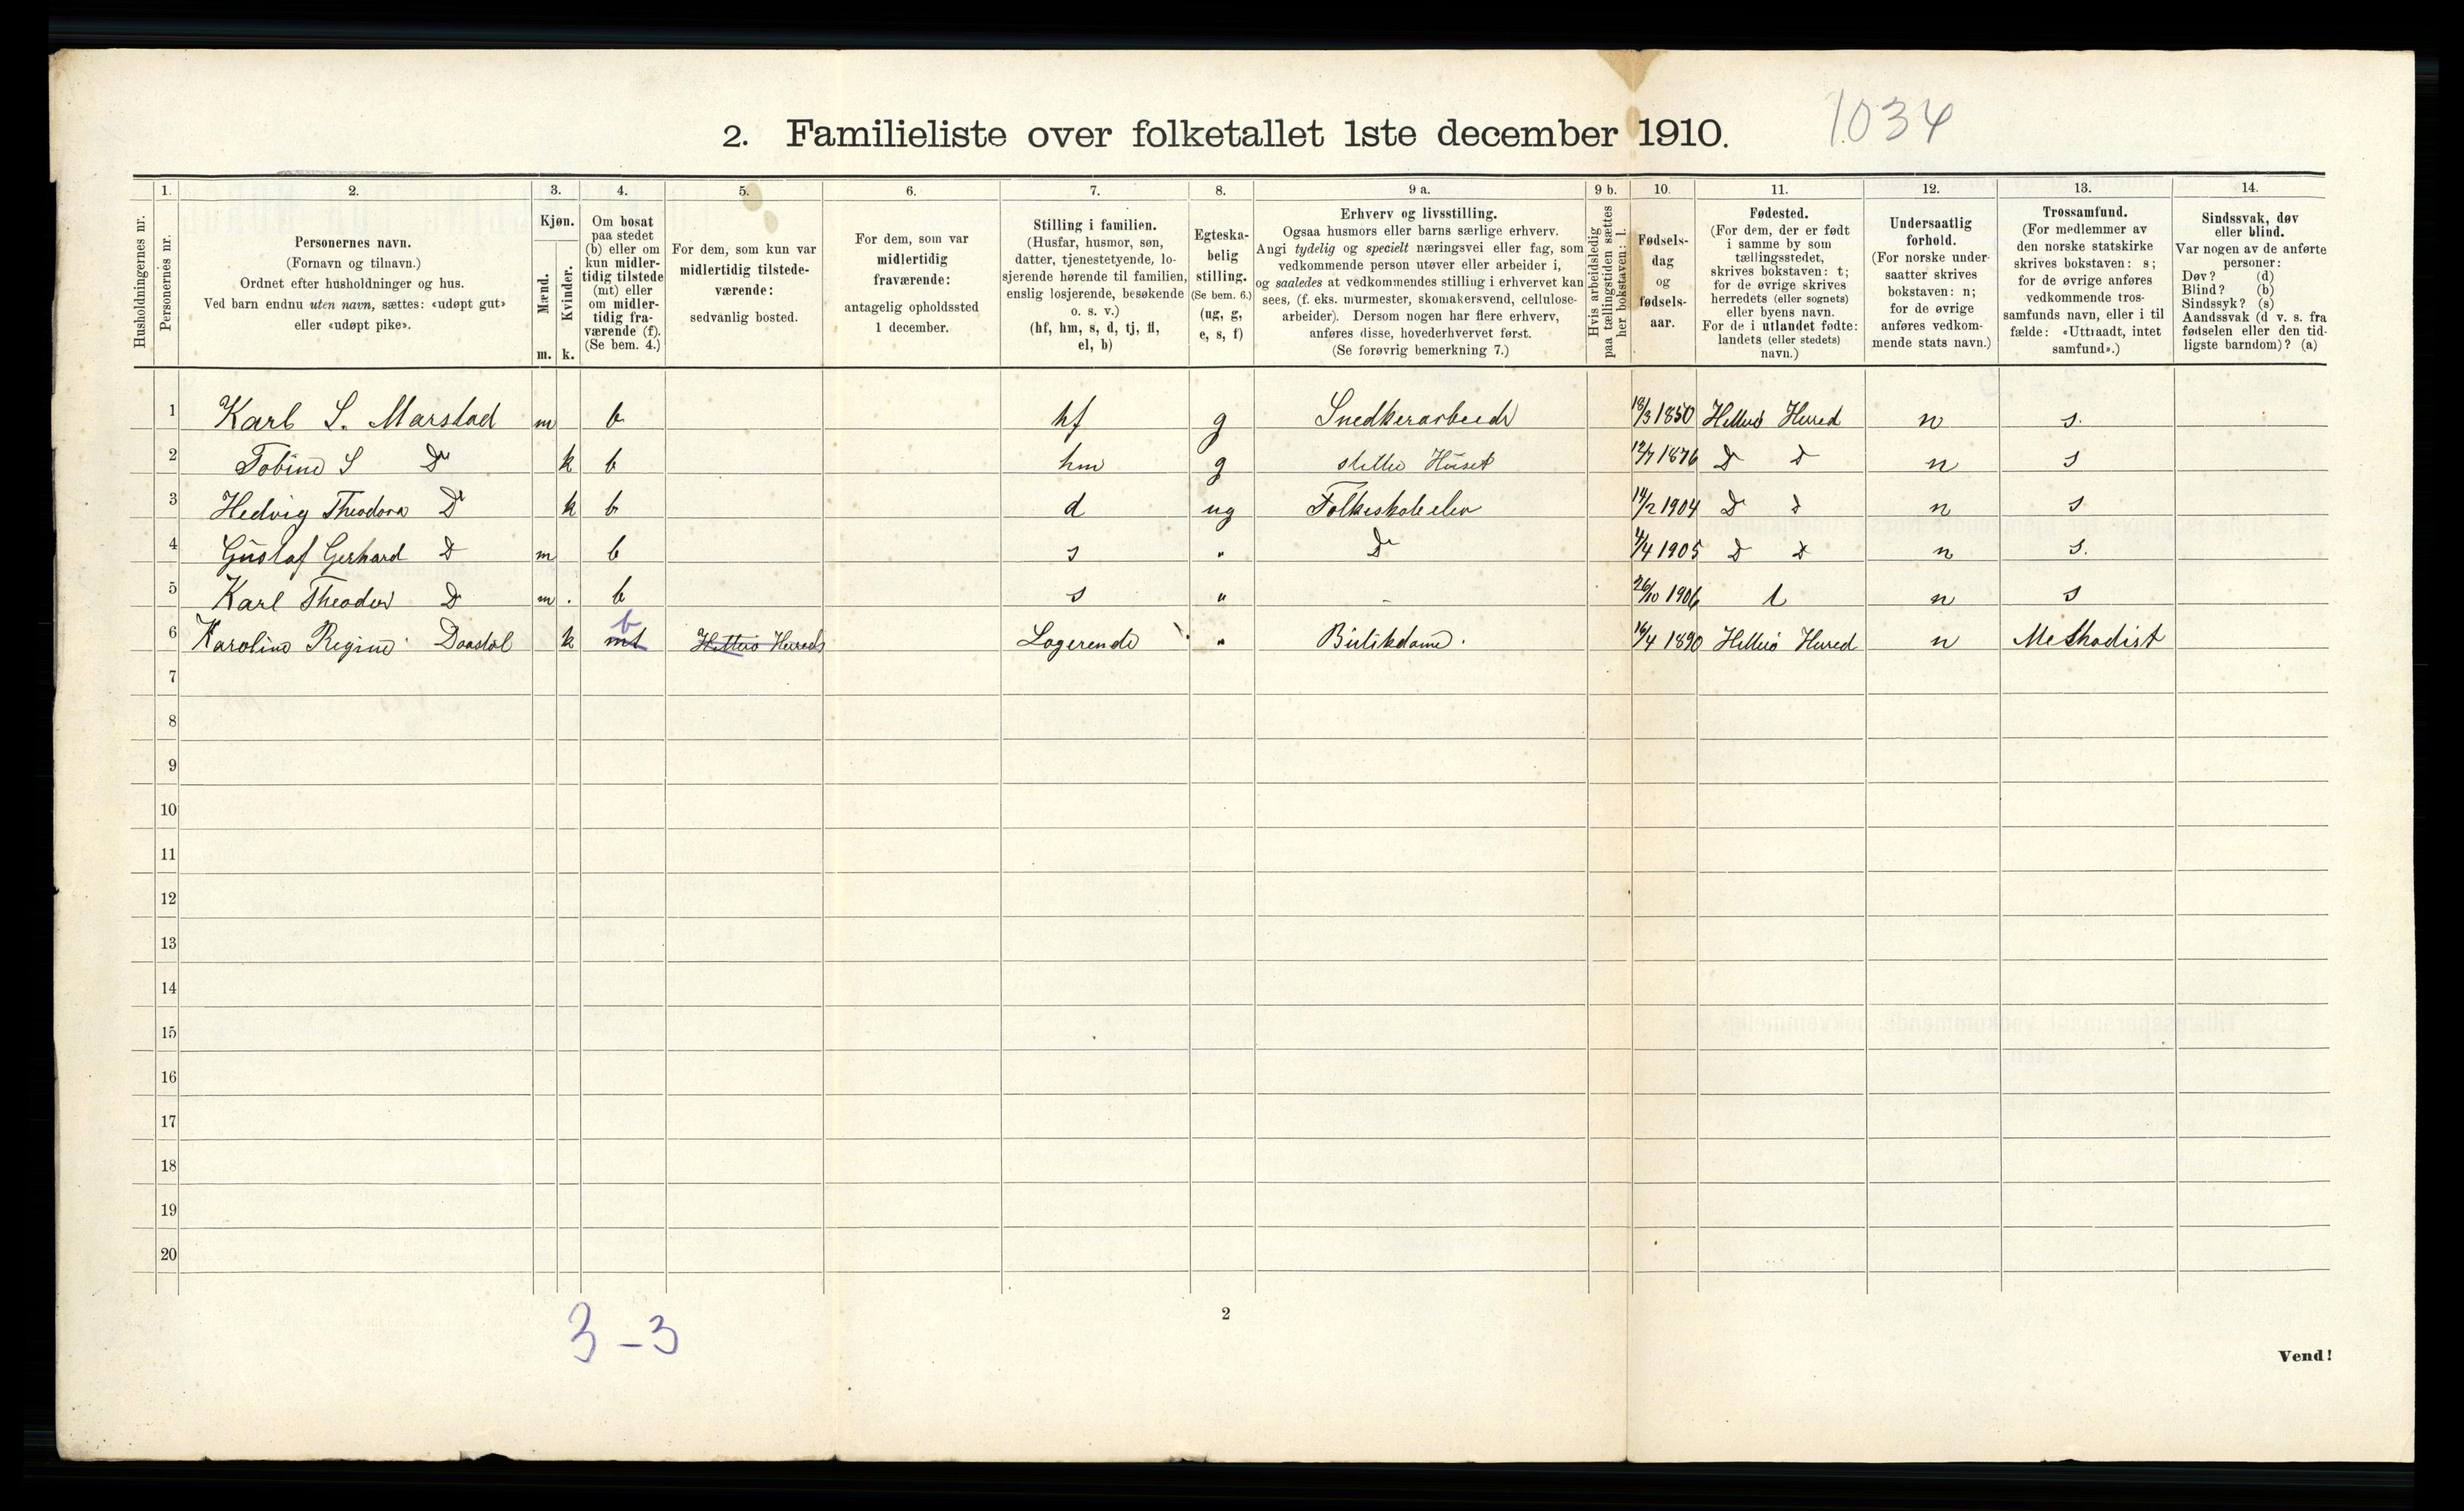 2. Familieliste over folketallet 1ste december 1910.
1034
1. 2. 3. 4. 5. 6. 7. 8. 9 a. 9 b. 10. 11. 12. 13. 14.
Husholdningernes nr.
Personernes nr.
Personernes navn.
(Fornavn og tilnavn.)
Ordnet efter husholdninger og hus.
Ved barn endnu uten navn, sættes: «udøpt gut»
eller «udøpt pike».
Kjøn.
Mænd.
Kvinder.
m. k.
Om bosat
paa stedet
(b) eller om
kun midler-
tidig tilstede
(mt) eller
om midler-
tidig fra-
værende (f).
(Se bem. 4.)
For dem, som kun var
midlertidig tilstede-
værende:
sedvanlig bosted.
For dem, som var
midlertidig
fraværende:
antagelig opholdssted
1 december.
Stilling i familien.
(Husfar, husmor, søn,
datter, tjenestetyende, lo-
sjerende hørende til familien,
enslig losjerende, besøkende
o. s. v.)
(hf, hm, s, d, tj, fl,
el, b)
Egteska-
belig
stilling.
(Se bem. 6.)
(ug, g,
e, s, f)
Erhverv og livsstilling.
Ogsaa husmors eller barns særlige erhverv.
Angi tydelig og specielt næringsvei eller fag, som
vedkommende person utøver eller arbeider i,
og saaledes at vedkommendes stilling i erhvervet kan
sees, (f. eks. murmester, skomakersvend, cellulose-
arbeider). Dersom nogen har flere erhverv,
anføres disse, hovederhvervet først.
(Se forøvrig bemerkning 7.)
Hvis arbeidsledig
paa tællingstiden sættes
her bokstaven: l.
Fødsels-
dag
og
fødsels-
aar.
Fødested.
(For dem, der er født
i samme by som
tællingsstedet,
skrives bokstaven: t;
for de øvrige skrives
herredets (eller sognets)
eller byens navn.
For de i utlandet fødte:
landets (eller stedets)
navn.)
Undersaatlig
forhold.
(For norske under-
saatter skrives
bokstaven: n;
for de øvrige
anføres vedkom-
mende stats navn.)
Trossamfund.
(For medlemmer av
den norske statskirke
skrives bokstaven: s;
for de øvrige anføres
vedkommende tros-
samfunds navn, eller i til
fælde: «Uttraadt, intet
samfund».)
Sindssvak, døv
eller blind.
Var nogen av de anførte
personer:
Døv? (d)
Blind? (b)
Sindssyk? (s)
Aandssvak (d v. s. fra
fødselen eller den tid-
ligste barndom)? (a)
1 Karl S. Marstad m b hf g Snedkerarbeide 18/3 1850 Hitterø Hered n s.
2 Tobine S Do k b hm g steller Huset 12/7 1876 D D n s
3 Hedvig Theodora Do k b d ug Folkeskoleelev 14/2 1904 D D n s
4 Gustaf Gerhard D m b s " Do 4/4 1905 D D n s.
5 Karl Theodor D m. b s " - 26/10 1906 t n s
6 Karoline Regine Daastøl k mt b Hitterø Hereds Logerende " Butikdame. 16/4 1890 Hitterø Hered n Methodist
7
8
9
10
11
12
13
14
15
16
17
18
19
20
3-3
2
Vend!